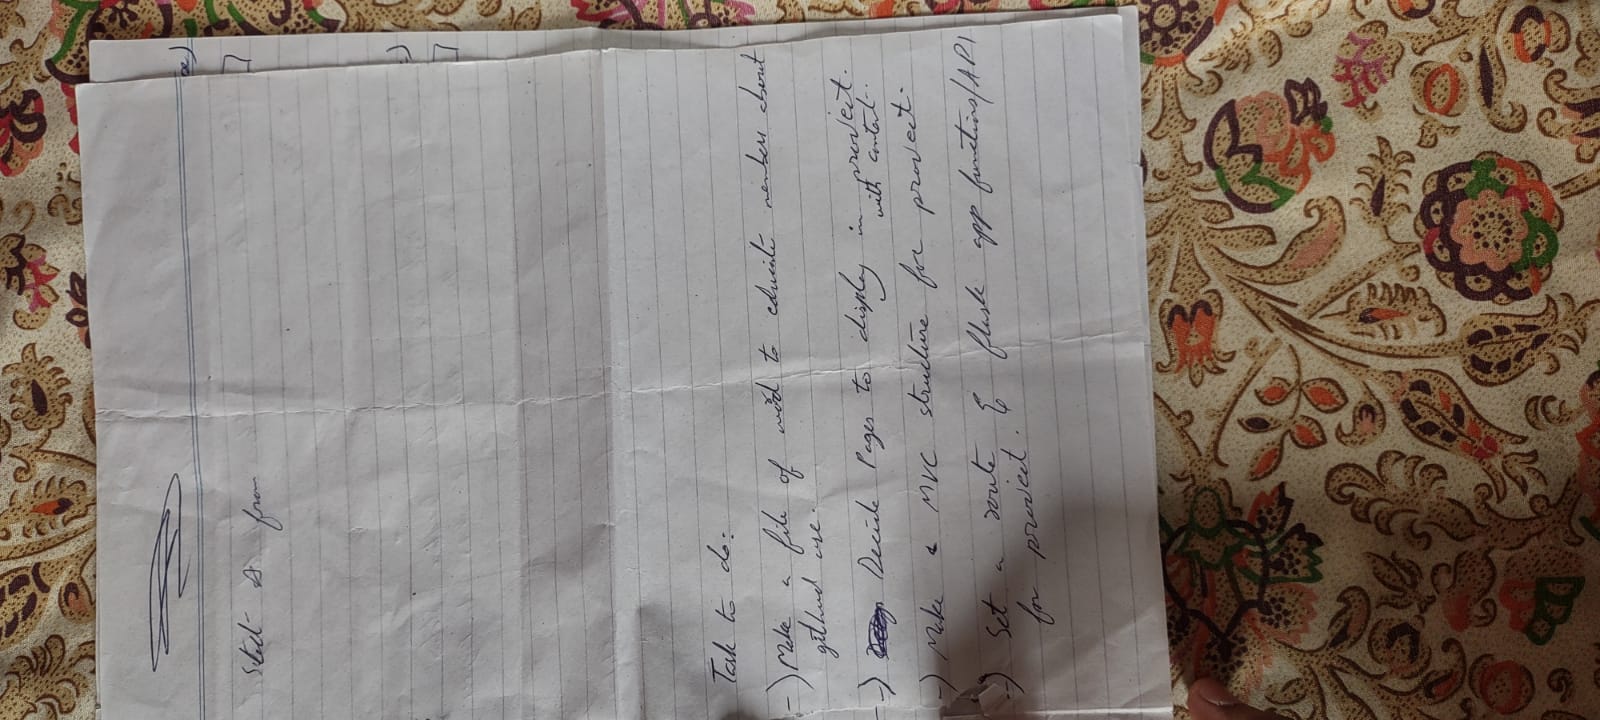 Select * from
Task to do:
-) Make a file of word to educate members about
github use.
-) Decide Pages to display in provect.
with content.
-) Make a MVC structure for provect.
-) Set a route & flask app functions/API
for provect.